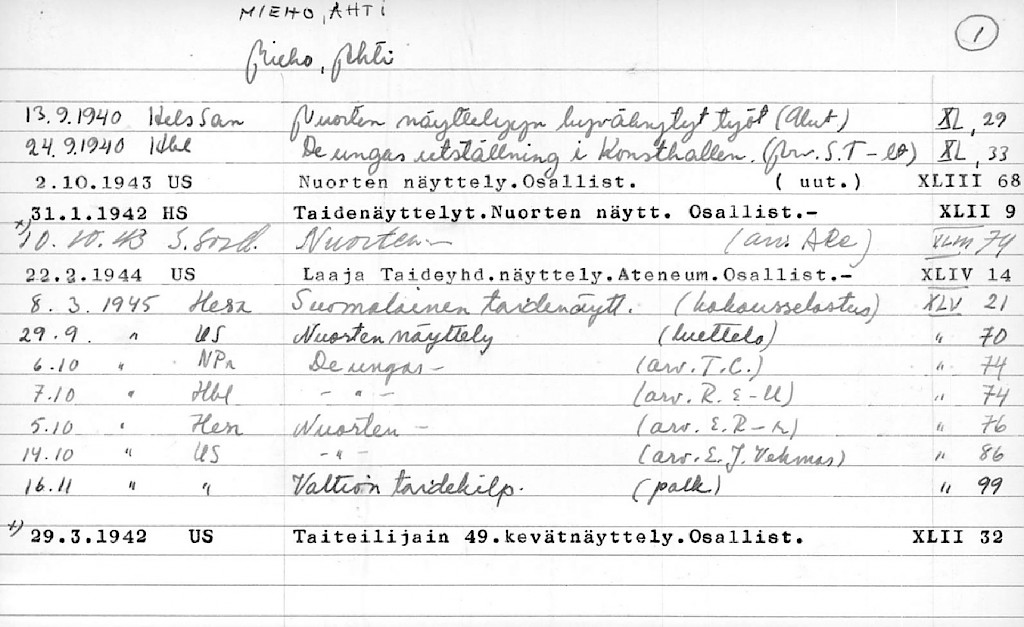 MIEHO, AHTI
1
Mieho, Ahti
13.9.1940 HelsSan Nuorten näyttelyyn hyväksytyt työt (Alut) XL, 29
24.9.1940 Hbl De ungas utställning i Konsthallen. (arv. S.T-) XL, 33
2.10.1943 US Nuorten näyttely.Osallist. ( uut.) XLIII 68
x) 31.1.1942 HS Taidenäyttelyt.Nuorten näytt. Osallist.- XLII 9
10.10.43 S.Sosd. Nuorten- (arv. Ale) XLIII 79
22.2.1944 US Laaja Taideyhd.näyttely.Ateneum.Osallist.- XLIV 14
8.3.1945 Hesa Suomalainen taidenäytt. (kokousselostus) XLV 21
29.9. " US Nuorten näyttely (luettelo) " 70
6.10 " NPr De ungas - (arv. T.C.) " 74
7.10 " Hbl - " - (arv. R. E-ll) " 74
5.10 " Hesa Nuorten - (arv. E.R-r) " 76
14.10 " US - " - (arv. E. J. Vehmas) " 86
16.11 " " Valtion taidekilp. (palk.) " 99
x) 29.3.1942 US Taiteilijain 49.kevätnäyttely.Osallist. XLII 32